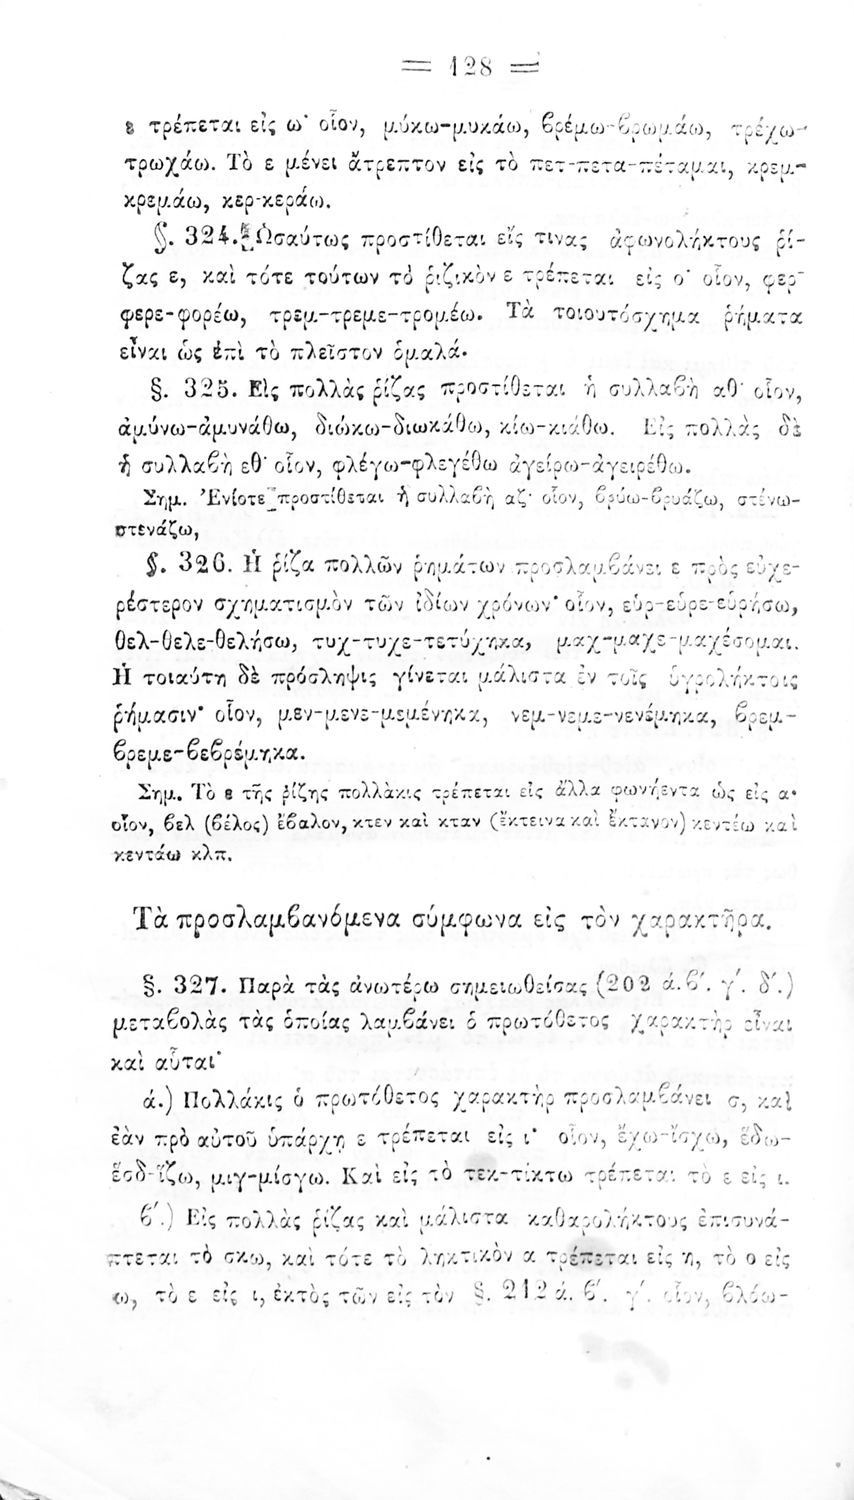 = 128 =
ε τρέπεται εἰς ω· οἷον, μύκω-μυκάω, βρέμω-βρωμάω, τρέχω-
τρωχάω. Τὸ ε μένει ἄτρεπτον εἰς τὸ πετ-πετα-πέταμαι, κρεμ-
κρεμάω, κερ-κεράω.
§. 324. Ὡσαύτως προστίθεται εἴς τινας ἀφωνολήκτους ῥί-
ζας ε, καὶ τότε τούτων τὸ ῥιζικὸν ε τρέπεται εἰς ο· οἷον, φερ-
φερε-φορέω, τρεμ-τρεμε-τρομέω. Τὰ τοιουτόσχημα ῥήματα
εἶναι ὡς ἐπὶ τὸ πλεῖστον ὁμαλά.
§. 325. Εἰς πολλὰς ῥίζας προστίθεται ἡ συλλαβὴ αθ· οἷον,
ἀμύνω-ἀμυνάθω, διώκω-διωκάθω, κίω-κιάθω. Εἰς πολλὰς δὲ
ἡ συλλαβὴ εθ· οἷον, φλέγω-φλεγέθω ἀγείρω-ἀγειρέθω.
Σημ. Ἐνίοτε προστίθεται ἡ συλλαβὴ αζ· οἷον, βρύω-βρυάζω, στένω-
στενάζω,
§. 326. Ἡ ῥίζα πολλῶν ῥημάτων προσλαμβάνει ε πρὸς εὐχε-
ρέστερον σχηματισμὸν τῶν ἰδίων χρόνων· οἷον, εὑρ-εὑρε-εὑρήσω,
θελ-θελε-θελήσω, τυχ-τυχε-τετύχηκα, μαχ-μαχε-μαχέσομαι.
Ἡ τοιαύτη δὲ πρόσληψις γίνεται μάλιστα ἐν τοῖς ὑγρολήκτοις
ῥήμασιν· οἷον, μεν-μενε-μεμένηκα, νεμ-νεμε-νενέμηκα, βρεμ-
βρεμε-βεβρέμηκα.
Σημ. Τὸ ε τῆς ῥίζης πολλάκις τρέπεται εἰς ἄλλα φωνήεντα ὡς εἰς α·
οἷον, βελ (βέλος) ἔβαλον, κτεν καὶ κταν (ἔκτεινα καὶ ἔκτανον) κεντέω καὶ
κεντάω κλπ.
Τὰ προσλαμβανόμενα σύμφωνα εἰς τὸν χαρακτῆρα.
§. 327. Παρὰ τὰς ἀνωτέρω σημειωθείσας (202 ά.β΄. γ΄. δ΄.)
μεταβολὰς τὰς ὁποίας λαμβάνει ὁ πρωτόθετος χαρακτὴρ εἶναι
καὶ αὗται·
ά.) Πολλάκις ὁ πρωτόθετος χαρακτὴρ προσλαμβάνει σ, καὶ
ἐὰν πρὸ αὐτοῦ ὑπάρχῃ ε τρέπεται εἰς ι· οἷον, ἔχω-ἴσχω, ἕδω-
ἕσδ-ἵζω, μιγ-μίσγω. Καὶ εἰς τὸ τεκ-τίκτω τρέπεται τὸ ε εἰς ι.
β΄.) Εἰς πολλὰς ῥίζας καὶ μάλιστα καθαρολήκτους ἐπισυνά-
πτεται τὸ σκω, καὶ τότε τὸ ληκτικὸν α τρέπεται εἰς η, τὸ ο εἰς
ω, τὸ ε εἰς ι, ἐκτὸς τῶν εἰς τὸν §. 212 ά. β΄. γ΄. οἷον, βλόω-